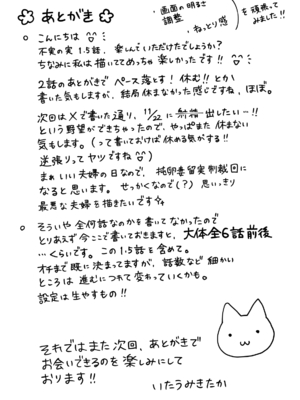 あとがき
・画面の明るさ調整
・ねっとり感
を頑張ってみました!!
○ こんにちは
不実の実 1.5話、楽しんでいただけたでしょうか?
ちなみに私は描いててめっちゃ楽しかったです!!
2話のあとがきで ペース落とす! 休む!! とか
書いた気もしますが、結局休まなかった感じですね、ほぼ。
次回はXで書いた通り、11/22 に 出したいー!!
という野望ができちゃったので、やっぱまた休まない
気もします。(って書いておけば休める気がする!!
逆張りってヤツですね)
まぁいい夫婦の日なので、托卵 制裁回に
なると思います。せっかくなので(?) 思いっきり
最悪な夫婦を描きたいです☆
○ そういや 全何話なのかを書いてなかったので
とりあえず今ここで書いておきますと、大体全6話前後
…くらいです。この1.5話を含めて。
オチまで既に決まってますが、話数など細かい
ところは進むにつれて変わっていくかも。
設定は生やすもの!!
それではまた次回、あとがきで
お会いできるのを楽しみにして
おります!!
いたうみきたか